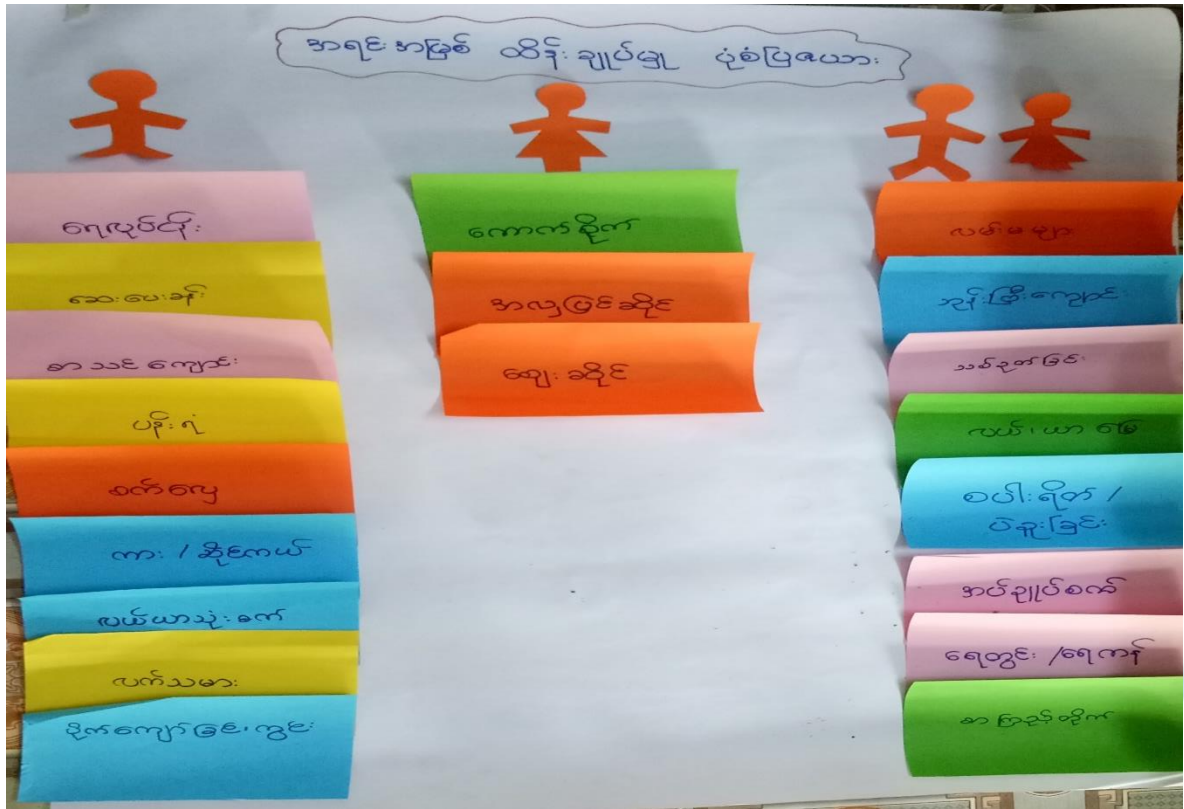 အရင်းအမြစ် ထိန်းချုပ်မှု ပုံစံပြဇယား
ရေလုပ်ငန်း
ဆေးပေးခန်း
စာသင်ကျောင်း
ပန်းရံ
စက်လှေ
ကား / ဆိုင်ကယ်
လယ်ယာသုံးစက်
လက်သမား
ပိုက်ကျော်ခြင်းကွင်း
ကောက်စိုက်
အလှပြင်ဆိုင်
ဈေးဆိုင်
လမ်းမများ
ဘုန်းကြီးကျောင်း
သစ်ခုတ်ခြင်း
လယ်၊ယာ မြေ
စပါးရိတ် /
ပဲနူးခြင်း
အပ်ချုပ်စက်
ရေတွင်း /ရေကန်
စာကြည့်တိုက်